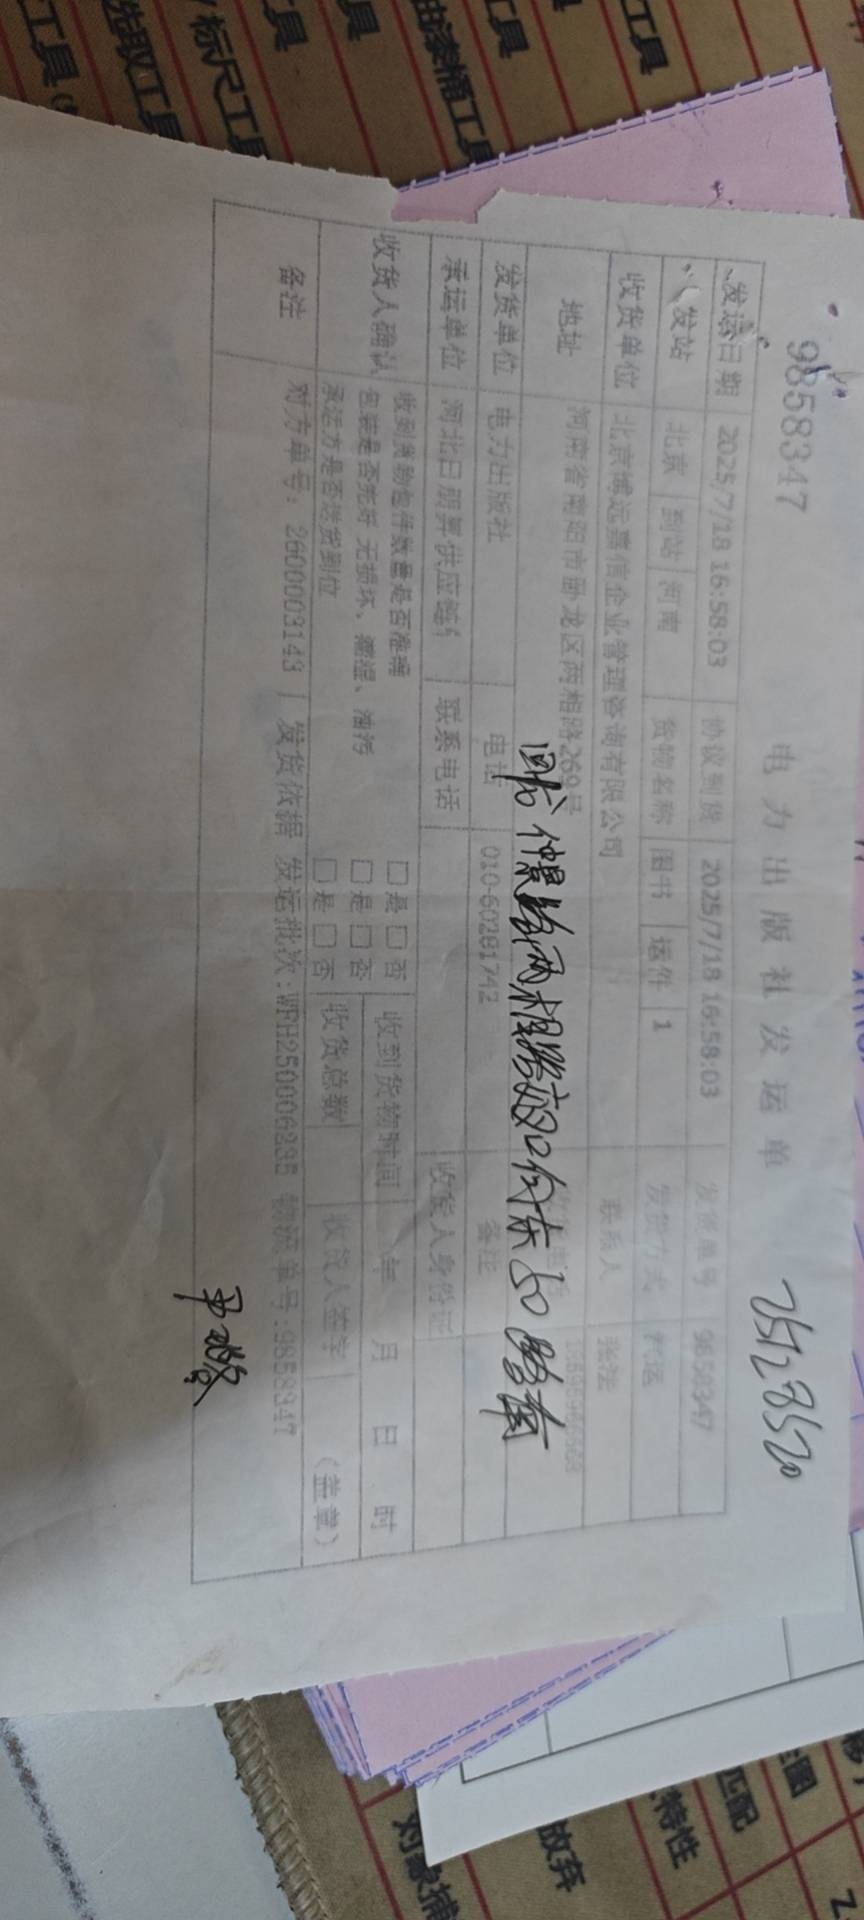 9858347
电力出版社发运单
25128520
发运日期 2025/7/18 16:58:03 协议到货 2025/7/18 16:58:03 发货单号 9858347
发站 北京 到站 河南 货物名称 图书 运件 1 发货方式 汽运
收货单位 北京博远嘉信企业管理咨询有限公司 联系人
地址 河南省南阳市卧龙区两相路269号
仲景路两相路交叉口往东50路南
发货单位 电力出版社 电话 010-60281742 备注
承运单位 河北日朋昇供应链 联系电话 收货人身份证
收货人确认 收到货物包件数量是否准确 □是□否 收到货物时间 年 月 日 时
包装是否完好 无损坏、潮湿、油污 □是□否
承运方是否送货到位 □是□否 收货总数 收货人签字 (盖章)
备注 对方单号: 2600003143 | 发货依据 发运批次:WPH250006335 物流单号:9858347
工具
选取工具
标尺工具
工具
油漆桶工具
工具
工具
对象捕
放弃
特性
匹配
圆